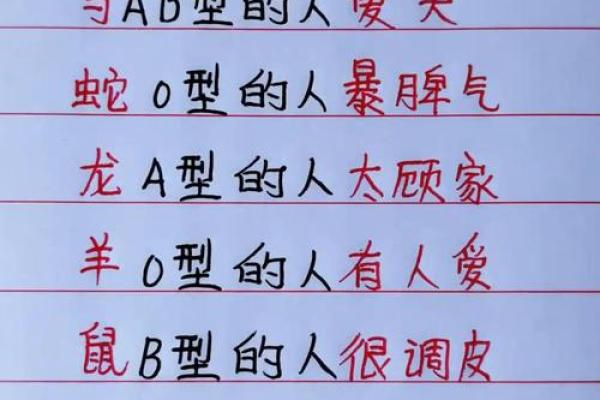 马AB型的人爱
蛇O型的人暴脾气
龙A型的人太顾家
羊O型的人有人爱
鼠B型的人很调皮